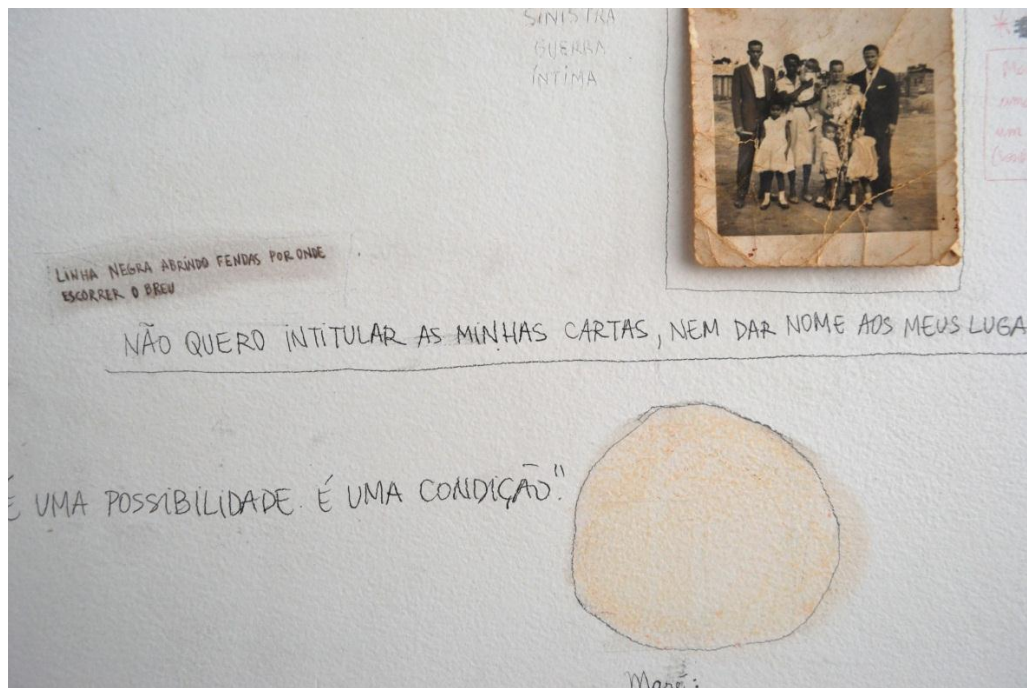 SINISTRA
GUERRA
ÍNTIMA
LINHA NEGRA ABRINDO FENDAS POR ONDE
ESCORRER O BREU
NÃO QUERO INTITULAR AS MINHAS CARTAS, NEM DAR NOME AOS MEUS LUGA
É UMA POSSIBILIDADE. É UMA CONDIÇÃO."